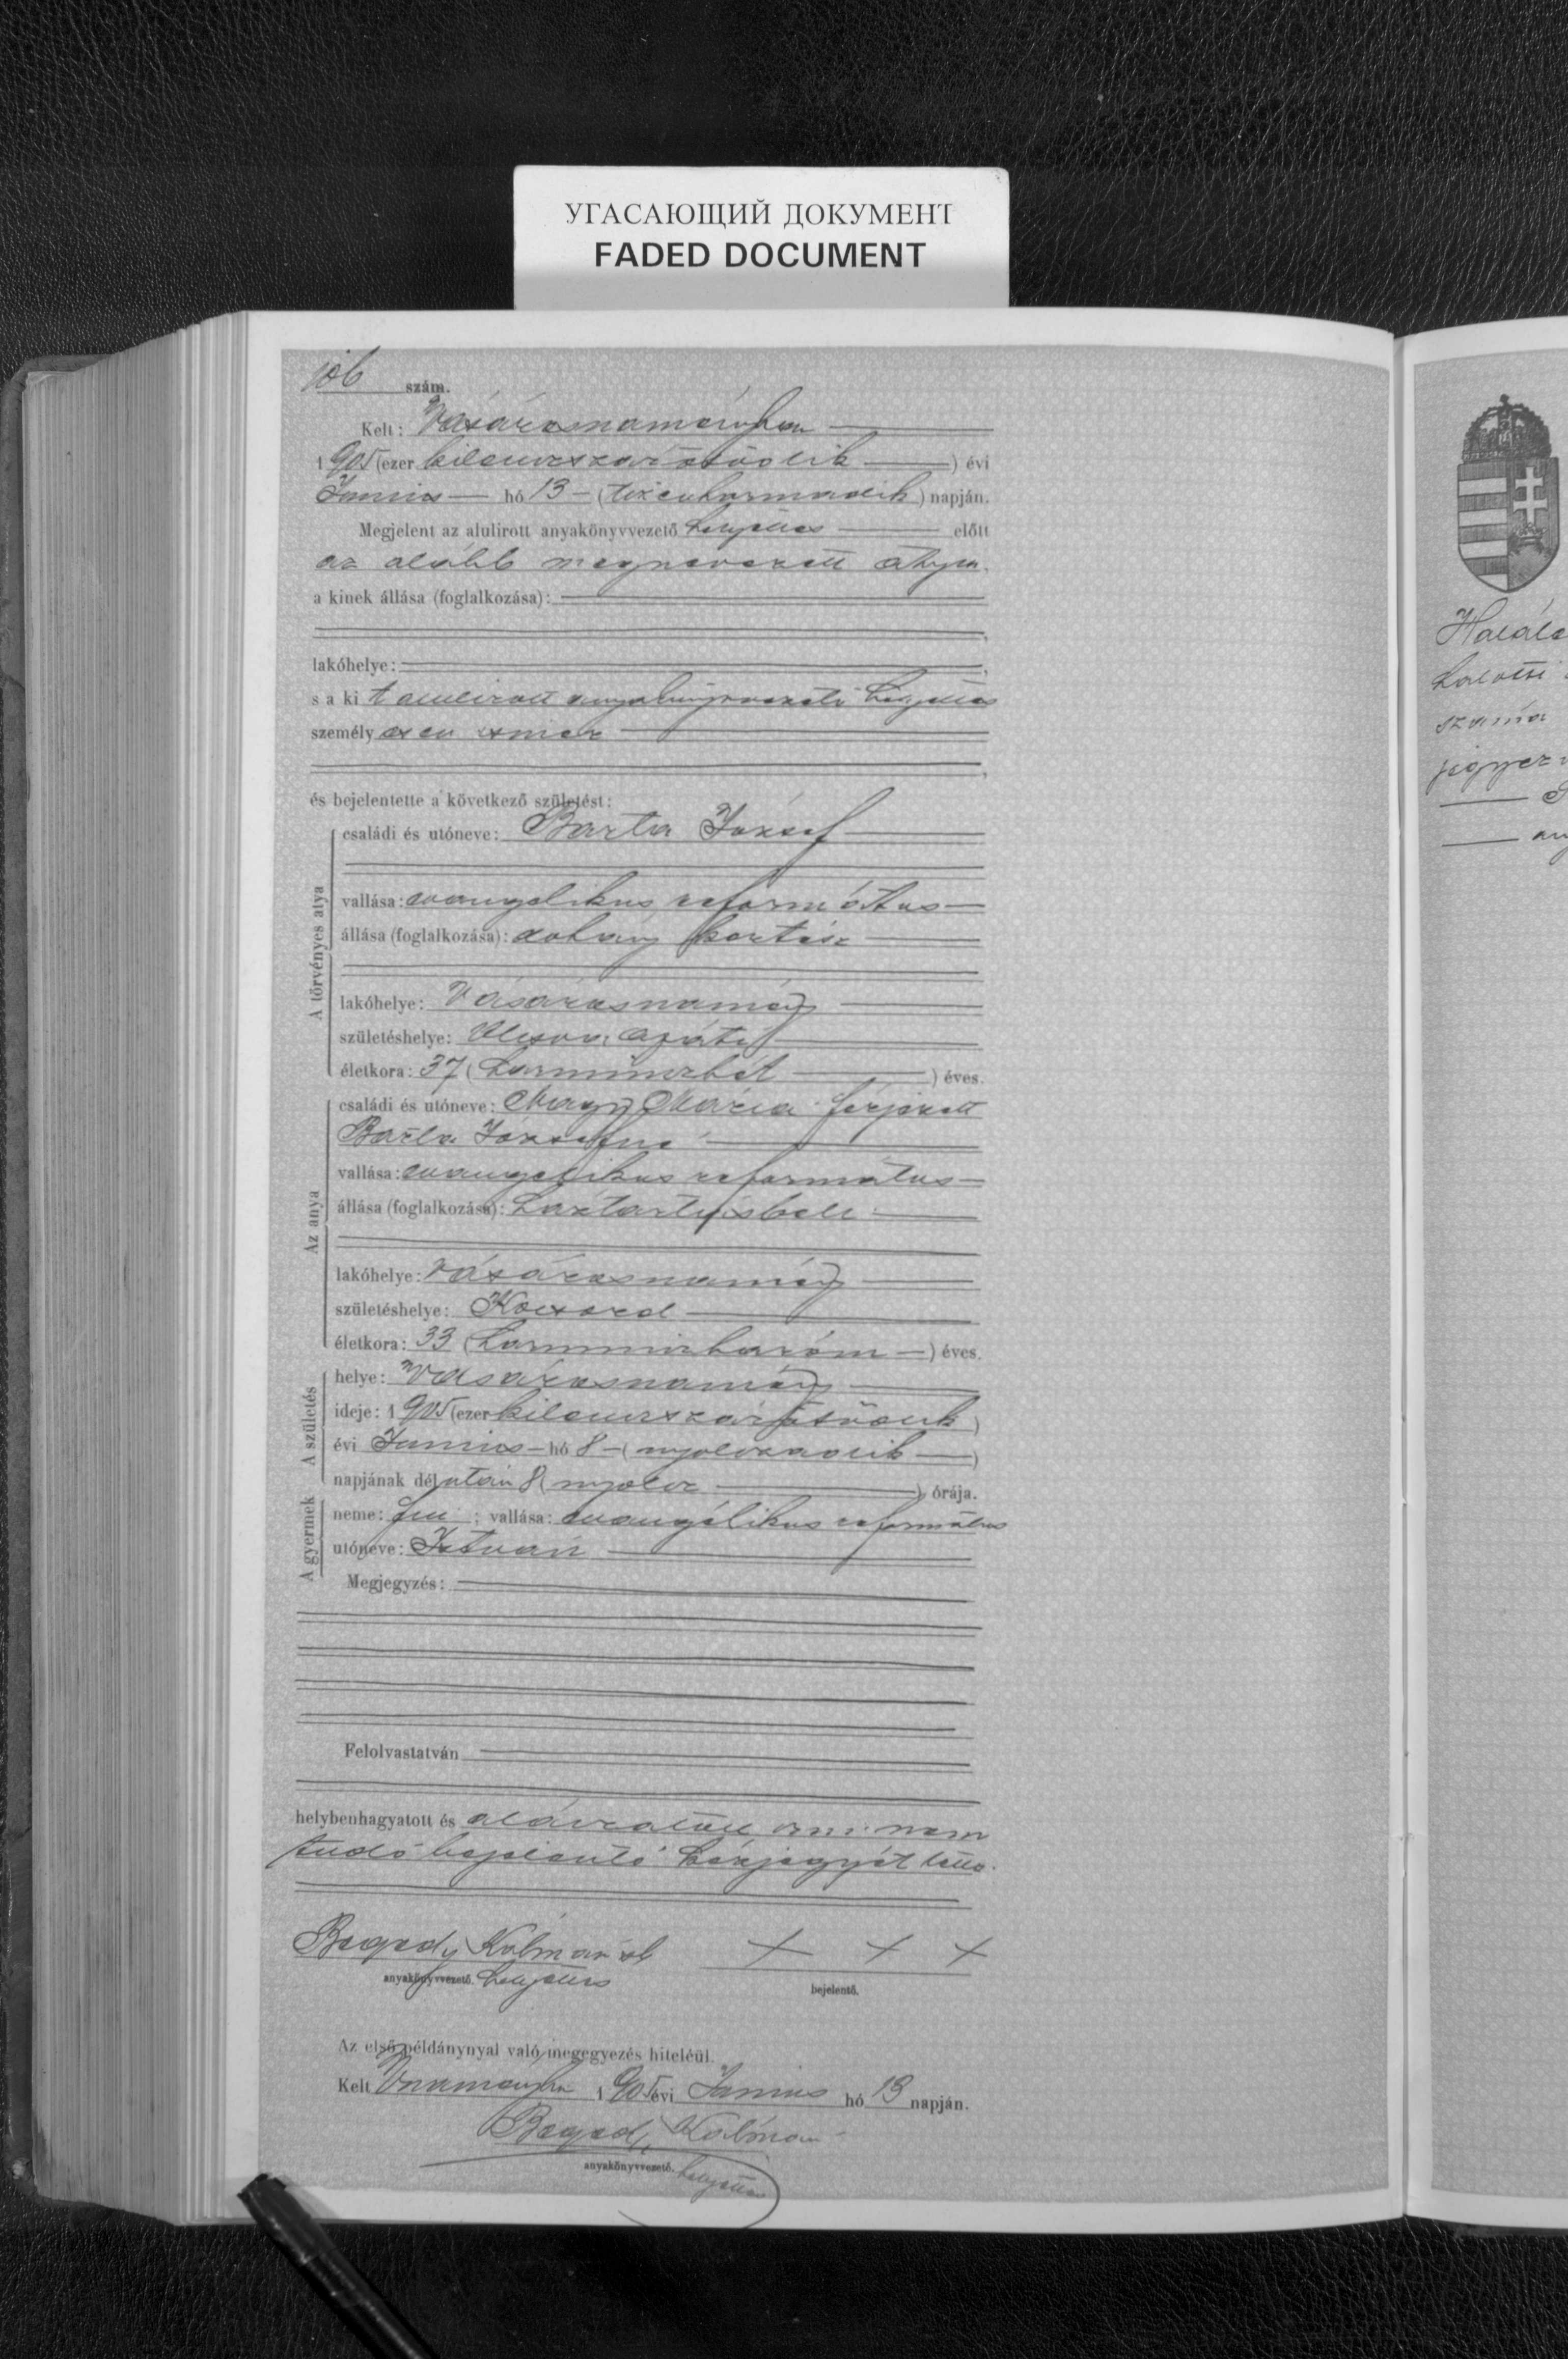 УГАСАЮЩИЙ ДОКУМЕНТ
FADED DOCUMENT
106 szám.
Kelt: Vásárosnaményban
1905 (ezer kilenczszázötödik) évi
Junius hó 13 (tizenharmadik) napján.
Megjelent az alulirott anyakönyvvezető helyettes előtt
az alább megnevezett atya,
a kinek állása (foglalkozása):
lakóhelye:
s a kit alulirott anyakönyvvezető helyettes
személyesen ismer
és bejelentette a következő születést:
A törvényes atya
családi és utóneve: Barta József
vallása: evangelikus református
állása (foglalkozása): dohány kertész
lakóhelye: Vásárosnamény
születéshelye: Olcsva apáti
életkora: 37 (harminczhét) éves.
Az anya
családi és utóneve: Nagy Mária férjezett
Barta Józsefné
vallása: evangelikus református
állása (foglalkozása): háztartásbeli
lakóhelye: Vásárosnamény
születéshelye: Kocsord
életkora: 33 (harminczhárom) éves.
A születés
helye: Vásárosnamény
ideje: 1905 (ezer kilenczszázötödik)
évi Junius hó 8 (nyolczadik)
napjának délután 8 (nyolcz) órája.
A gyermek
neme: fiu; vallása: evangélikus református
utóneve: István
Megjegyzés:
Felolvastatván
helybenhagyatott és aláiratott irni nem
tudó bejelentő kézjegyét tette.
Begedy Kálmán sk
anyakönyvvezető. helyettes
+ + +
bejelentő.
Az első példánynyal való megegyezés hiteléül.
Kelt Vnaményban 1905 évi Junius hó 13 napján.
Begedy Kálmán
anyakönyvvezető. helyettes
halotti
száma